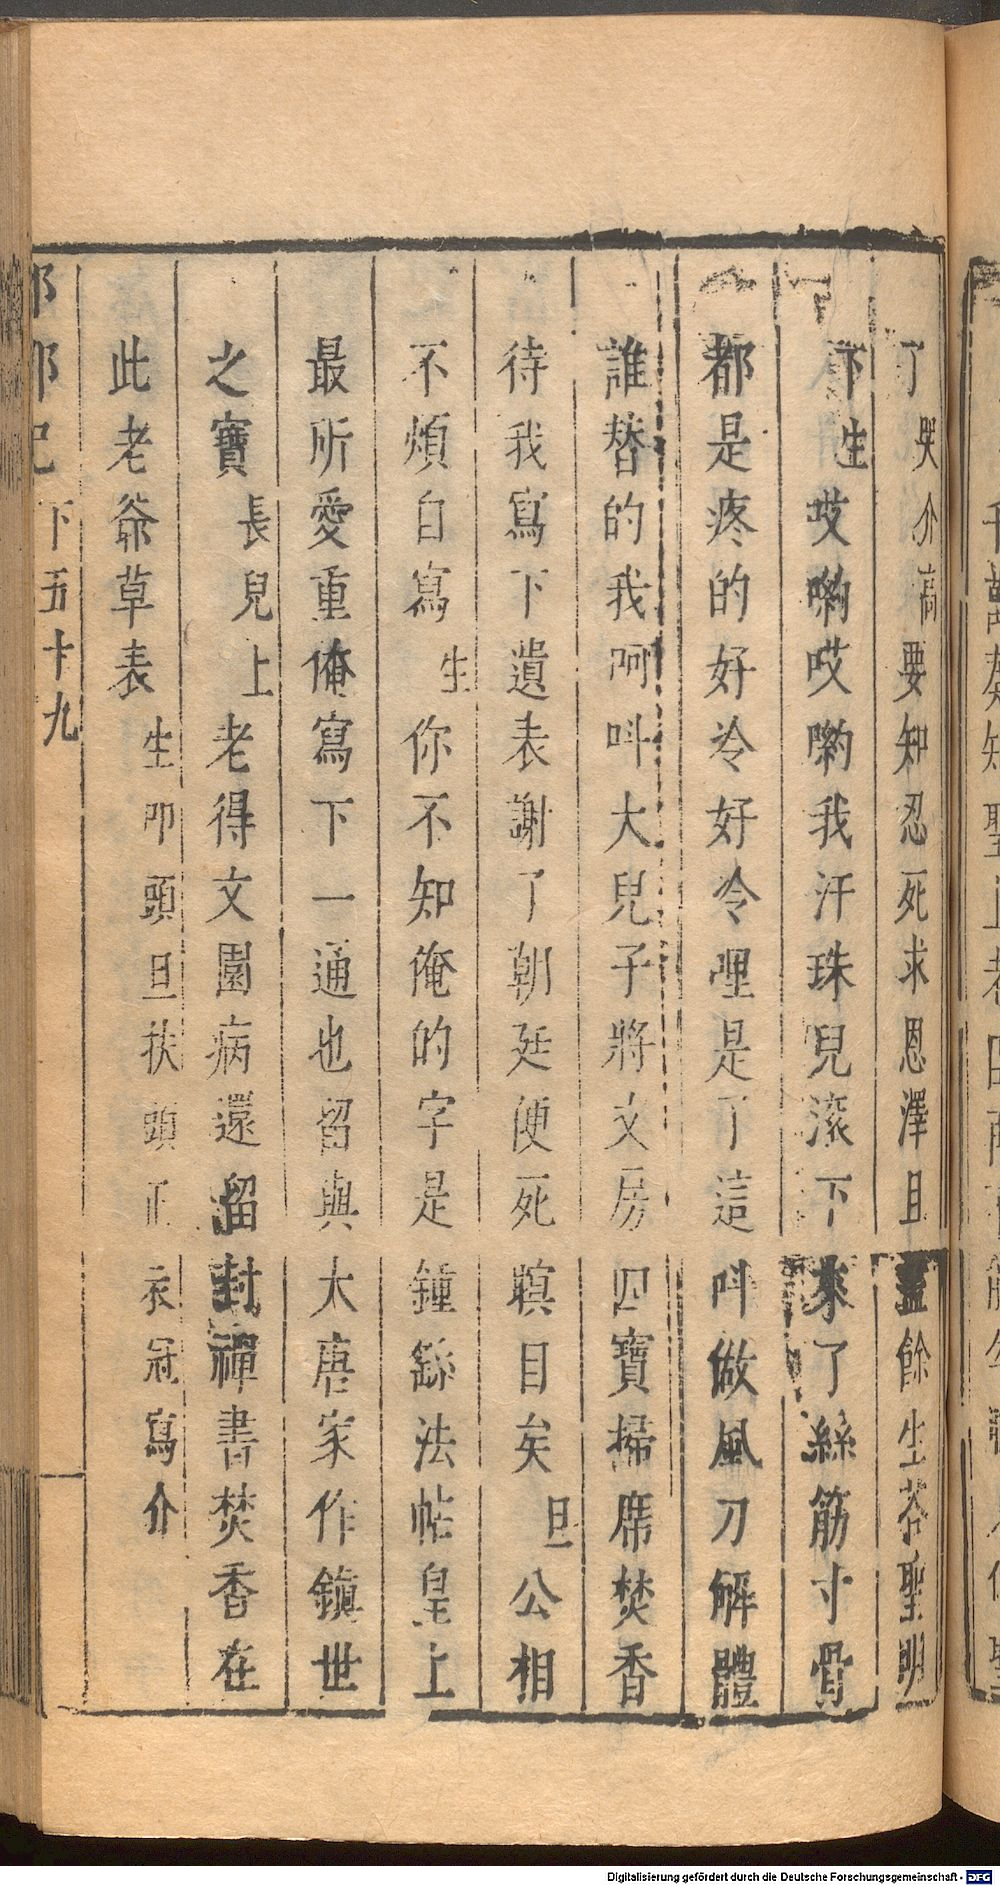 了哭介高要知忍死求恩澤且盡餘生荅聖明
下生哎喲哎喲我汗珠兒滚下來了絲筋寸骨
都是疼的好冷好冷哩是了這呌做風刀解體
誰替的我呵呌大兒子將文房四寶掃席焚香
待我寫下遺表謝了朝廷便死瞑目矣旦公相
不煩自寫生你不知俺的字是鍾繇法帖皇上
最所愛重俺寫下一通也留與大唐家作鎮世
之寶長兒上老得文園病還留封禪書焚香在
此老爺草表生叩頭旦扶頭正衣冠寫介
邯郸記 下五十九
Digitalisierung gefördert durch die Deutsche Forschungsgemeinschaft - DFG